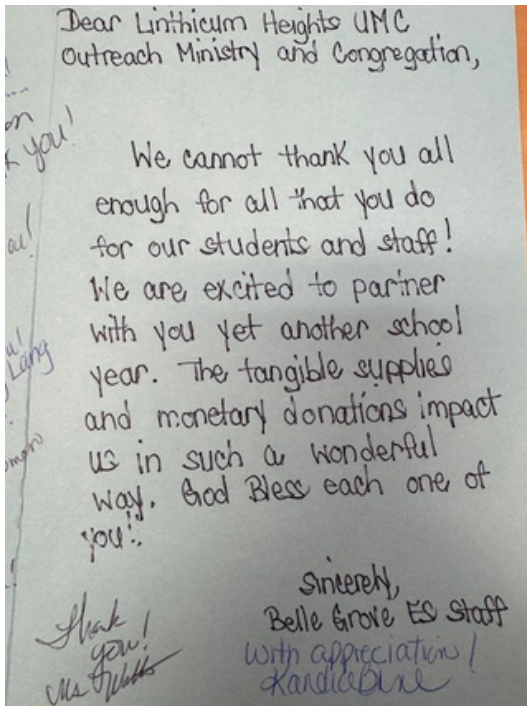 Dear Linthicum Heights UMC
Outreach Ministry and Congregation,
We cannot thank you all
enough for all that you do
for our students and staff!
We are excited to partner
with you yet another school
year. The tangible supplies
and monetary donations impact
us in such a wonderful
way. God Bless each one of
you!!
Sincerely,
Belle Grove ES Staff
With appreciation!
Thank
you!
Ms
you!
Lang